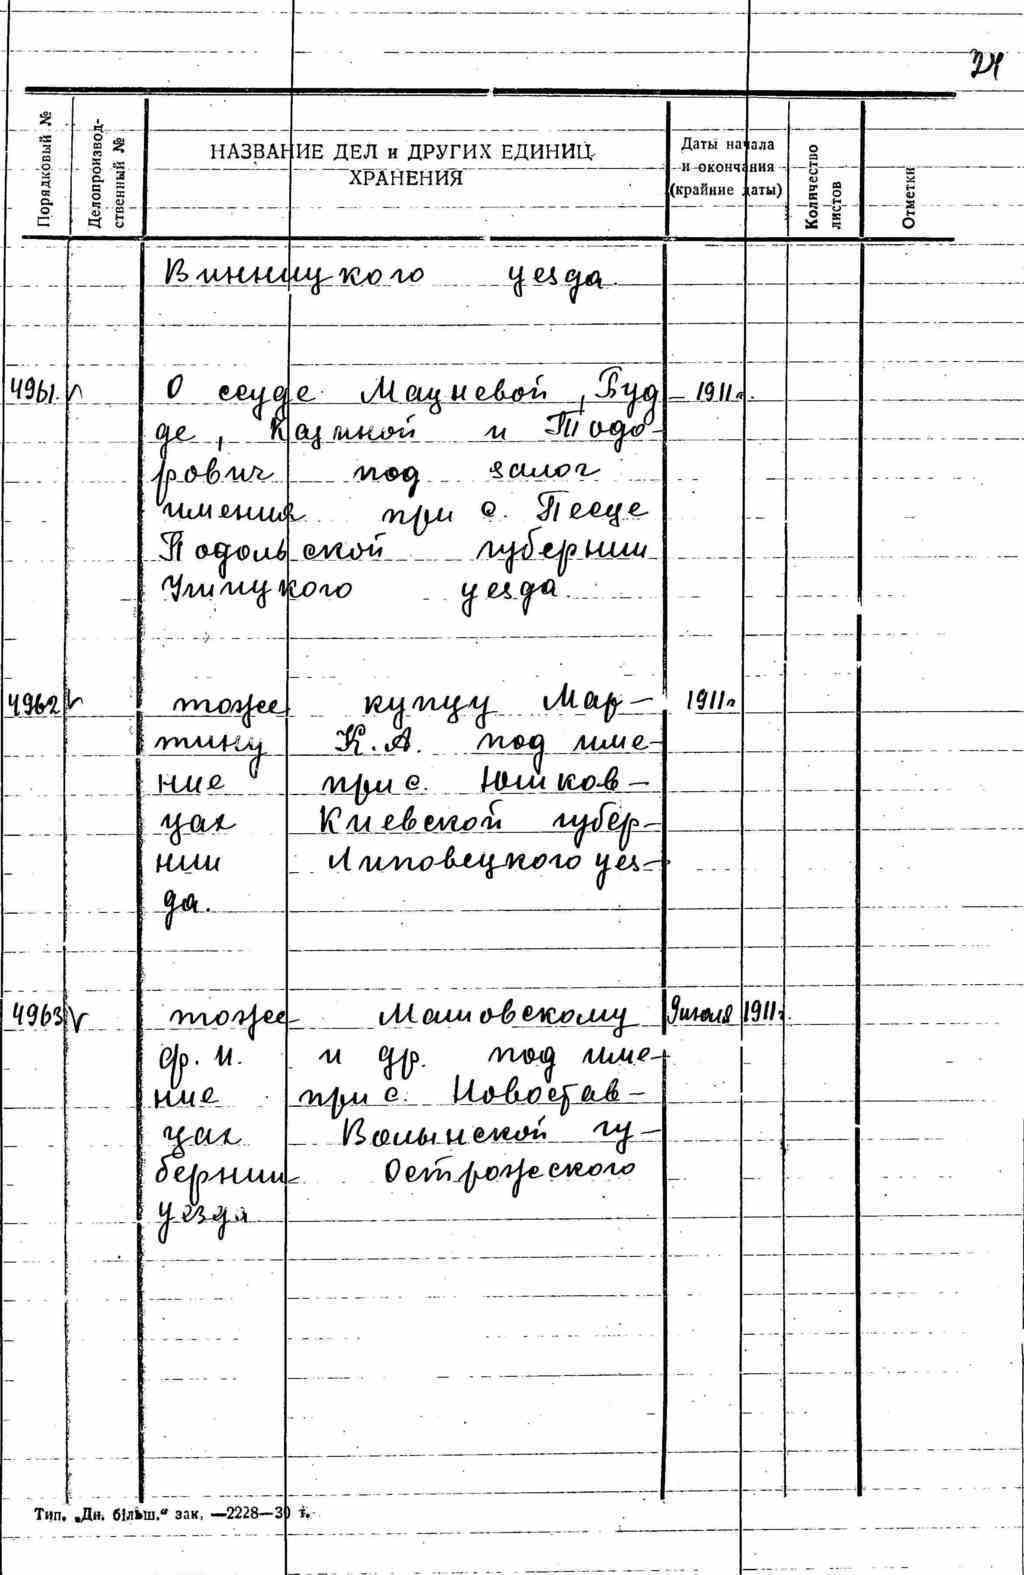 24
Порядковый №
Делопроизвод-
ственный №
НАЗВАНИЕ ДЕЛ и ДРУГИХ ЕДИНИЦ
ХРАНЕНИЯ
Даты начала
и окончания
(крайние даты)
Количество
листов
Отметки
Винницкого уезда.
4961. О ссуде Мацневой, Буд 1911г.
де, Казиной и Тодо-
рович под залог
имения при с. Песце
Подольской губернии
Ушицкого уезда.
4962 тоже купцу Мар- 1911г
тину К.А. под име-
ние при с. Юшков-
цах Киевской губер-
нии Липовецкого уез-
да.
4963 тоже Машовскому 9 июля 1911г.
Ф. И. и др. под име-
ние при с. Новостав-
цах Волынской гу-
бернии Острожеского
уезда
Тип. „Дн. більш." зак. —2228—30 т.